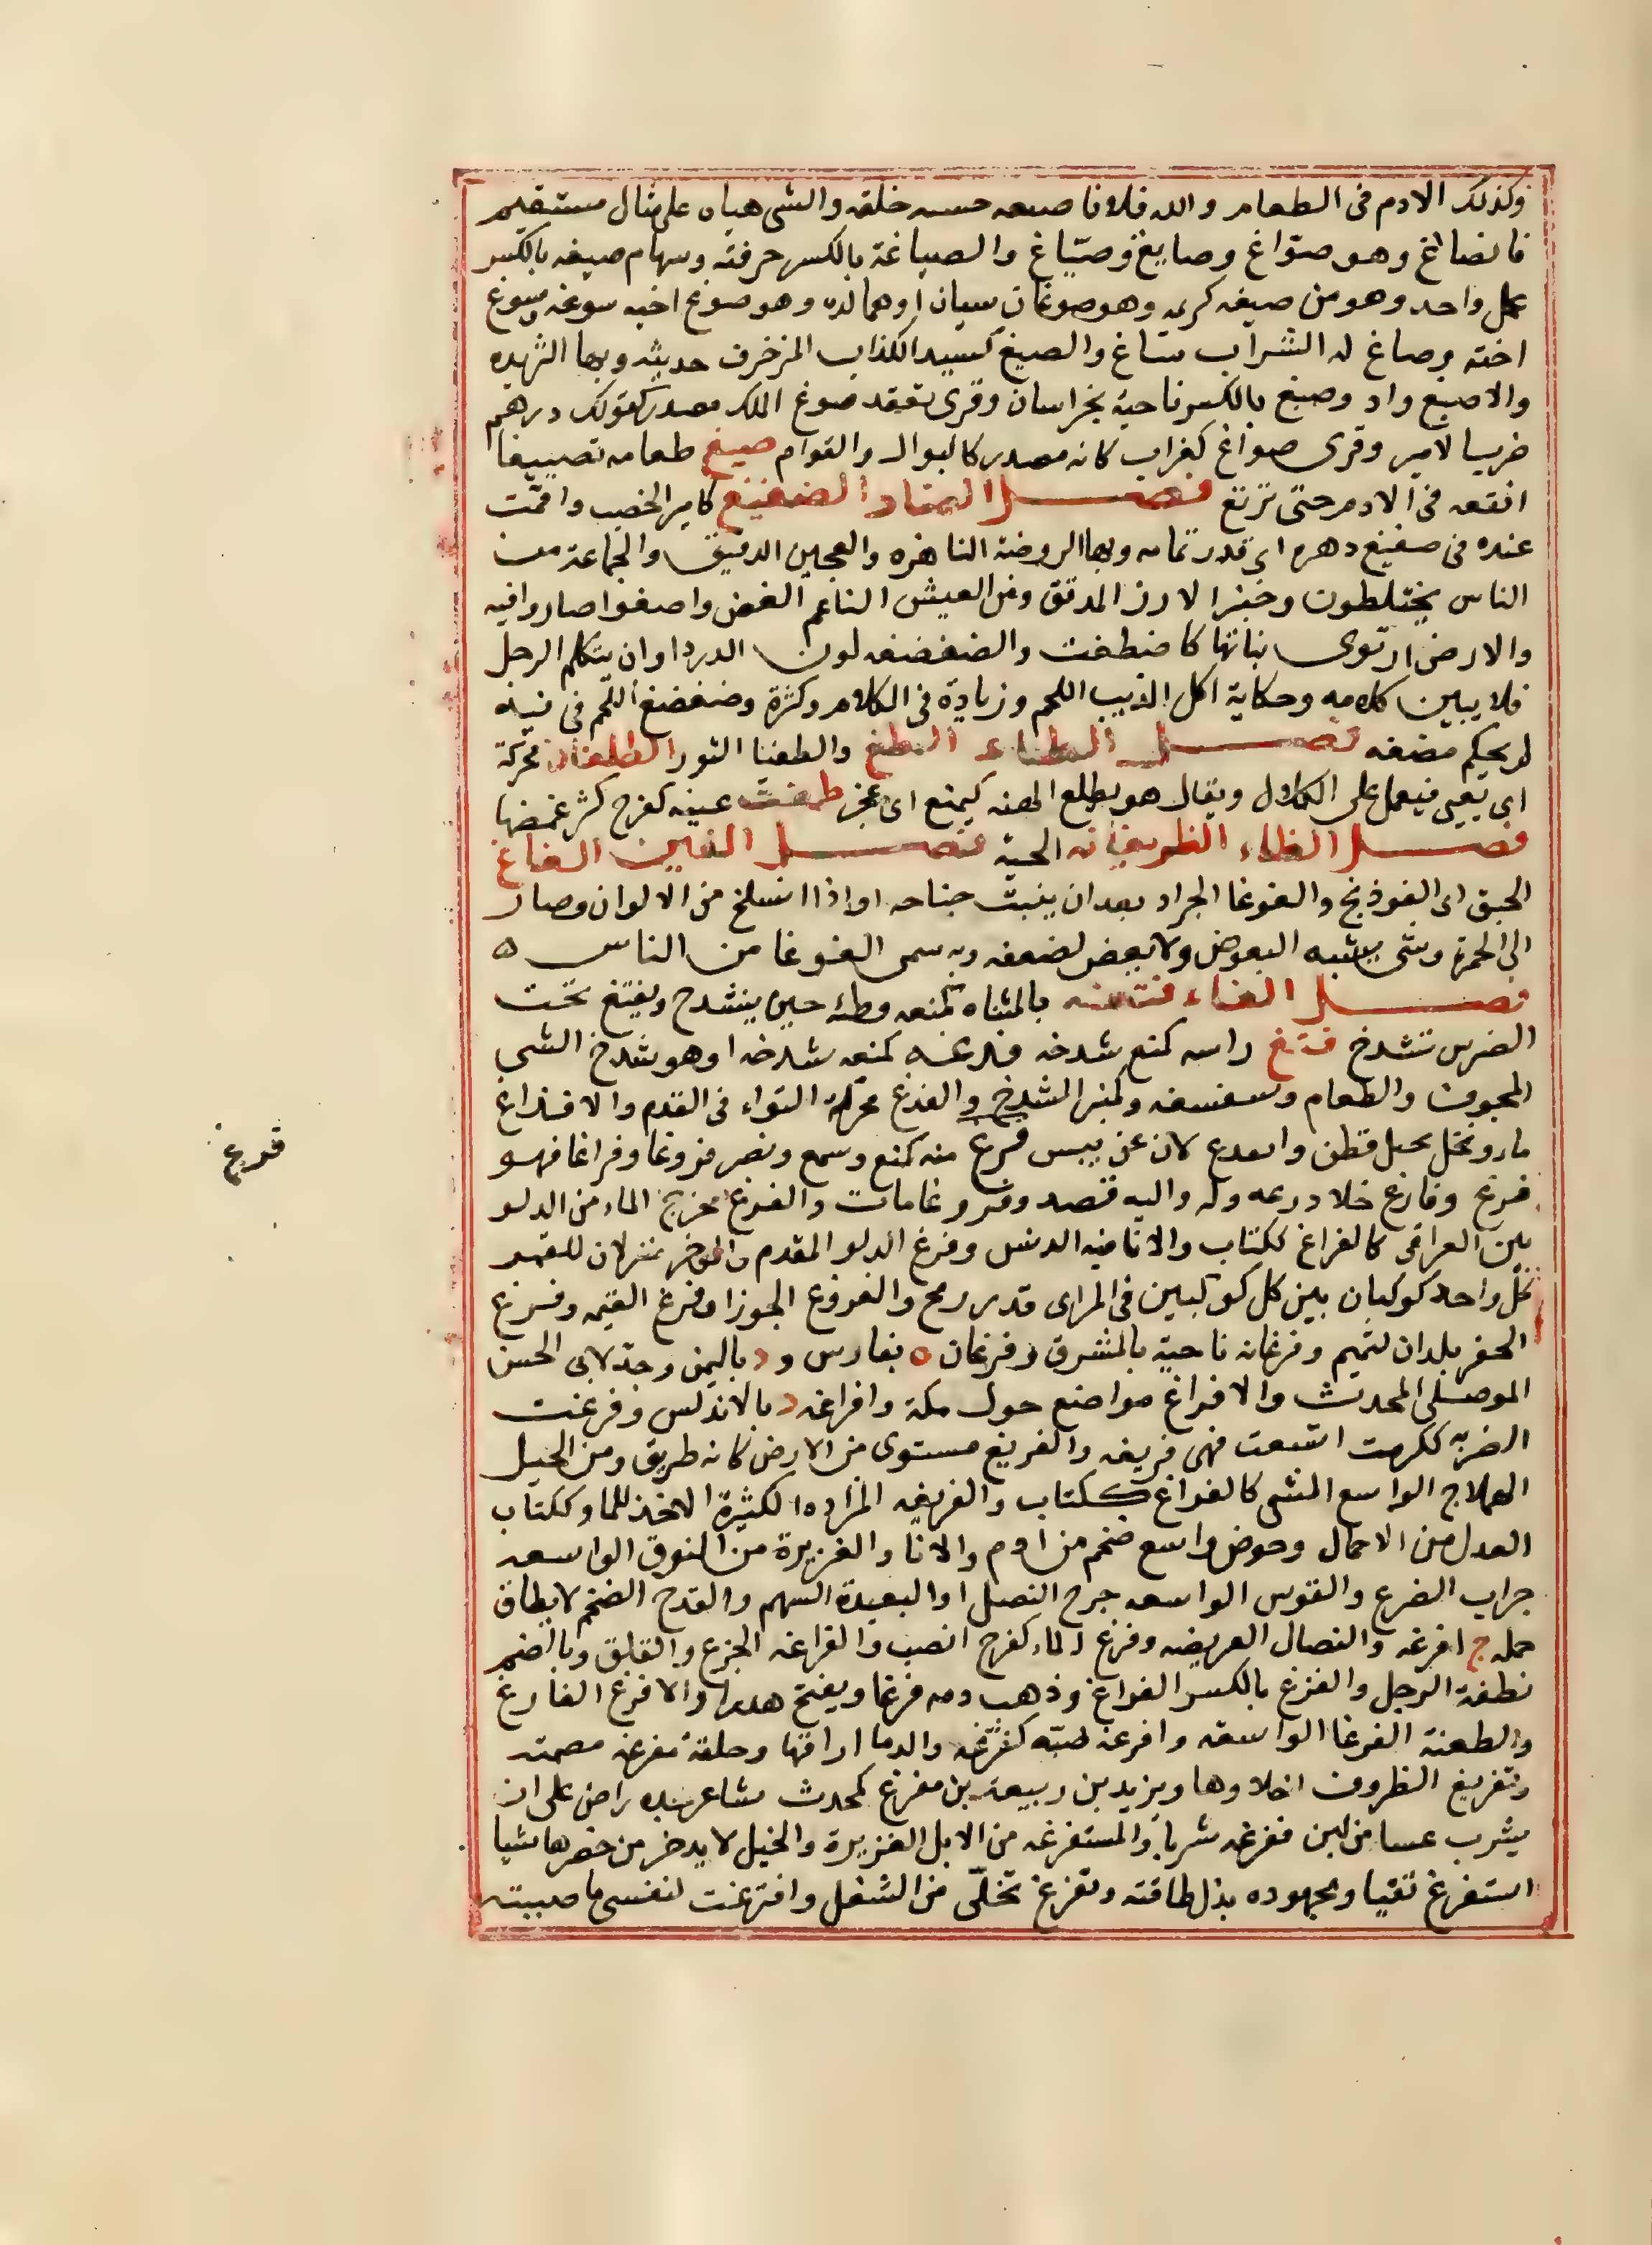 وكذلك الادم فى الطعام والله فلانا صيغه حسنه خلقه والشى هياه على مثال مستقيم
فانصاغ وهو صوّاغ وصايغ وصيّاغ والصياغة بالكسر حرفته وسهام صيغه بالكسر
عمل واحد وهو من صيغه كريمه وهو صوغان سيان او هما لده وهو صوغ اخيه سوغه وسوغ
اخته وصاغ له الشراب ساغ والصيغ كسيد الكذاب المزخرف حديثه وبها الثريده
والاصيغ واد وصيغ بالكسر ناحية بخراسان وقرى نفقد صوغ الملك مصدر كقولك درهم
ضرب الامير وقرى صواغ كغراب كانه مصدر كالبوال والقوام صيغ طعامه تصييغا
انقعه فى الادم حتى تريّغ فصل الضاد الضغيغ كامير الخصب واقمت
عنده فى ضغيغ دهره اى قدر تمامه وبها الروضة الناضره والعجين الدقيق والجماعة من
الناس يختلطون وخبز الارز المدقق ومن العيش الناعم الغض واضغوا صاروا فيه
والارض ارتوى نباتها كاضطغت والضغضغه لوك الدرداء او ان يتكلم الرجل
فلا يبين كلامه وحكاية اكل الذيب اللحم وزيادة فى الكلام وكثرة وضغضغ اللحم فى فيه
لم يحكم مضغه فصل الطاء الطغ والطغيا الثور الطلغان محركة
ان يعيى فيعمل على الكلال ويقال هو يطلع المهنه كيمنع اى عجز طمغت عينه كفرح كثر غمضها
فصل الظاء الظربغانه الحية فصل الغين الغاغ
الحبق اى الفوذنج والغوغا الجراد بعد ان ينبت جناحه او اذا انسلخ من الالوان وصار
الى الحمرة وشى يشبه البعوض ولا يعض لضعفه وبه سمى الغوغا من الناس ه
فصل الفاء فتغه بالمثناه كمنعه وطئه حين ينشدخ ويفتغ تحت
الضرس تشدخ فتغ راسه كمنع شدخه فدغه كمنعه شدخه او هو شدخ الشى
المجوف والطعام وسغسغه وكمنبر المشدخ والفدغ محركة التواء فى القدم والافداغ
ماء ونخل بجبل قطن وانفدغ لان عن يبس فرغ منه كمنع وسمع ونصر فروغا وفراغا فهو
فرغ وفارغ خلا ذرعه وله واليه قصد وفروغا مات والفرغ مخرج الماء من الدلو
بين العراقى كالفراغ ككتاب والانا فيه الدبس وفرغ الدلو المقدم والموخر منزلان للقمر
كل واحد كوكبان بين كل كوكبين فى المراى قدر رمح والفروغ الجوزا وفرغ القبه وفرغ
الحفر بلدان لتميم وفرغانه ناحية بالمشرق وفرغان ه بفارس و د باليمن وجد لابى الحسن
الموصلى المحدث والافراغ مواضع حول مكة وافراغه د بالاندلس وفرغت
الضربه ككرمت اتسعت فهى فريغه والفريغ مستوى من الارض كانه طريق ومن الخيل
الهملاج الواسع المشى كالفراغ ككتاب والفريغه المزاده الكثيرة الاخذ للما وككتاب
العدل من الاحمال وحوض واسع ضخم من ادم والانا والغزيرة من النوق الواسعه
جراب الضرع والقوس الواسعه جرح النصل او البعيدة السهم والقدح الضخم لا يطاق
حمله ج افرغه والنصال العريضه وفرغ الماء كفرح انصب والفراغه الجزع والقلق وبالضم
نطفة الرجل والفرغ بالكسر الفراغ وذهب دمه فرغا ويفتح هدرا والافرغ الفارغ
والطعنة الفرغا الواسعه وافرغه صبّه كفرّغه والدما اراقها وحلقة مفرغه مصمته
وتفريغ الظروف اخلاوها ويزيد بن ربيعة بن مفرغ كمحدث شاعر جده راهن على ان
يشرب عسا من لبن ففرغه شربا والمستفرغه من الابل الغزيرة والخيل لا يدخر من حضرها شيا
استفرغ تقيا ومجهوده بذل طاقته وتفرغ تخلّى من الشغل وافترغت لنفسى ما صببته
فرغ